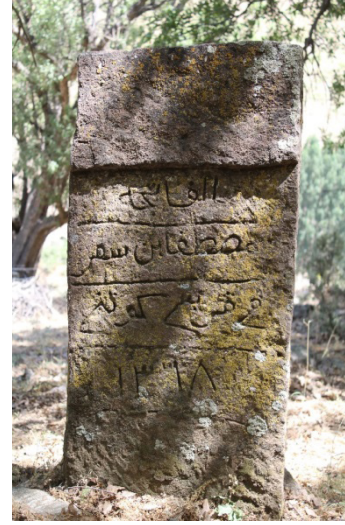 الفاتحه
مصطفا بن سفر
١٣٦٨